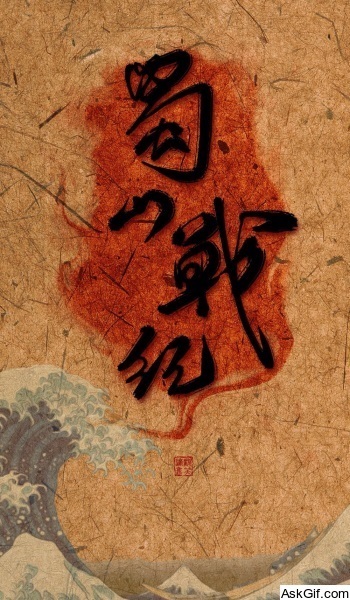 蜀
山
戰
纪
AskGif.com